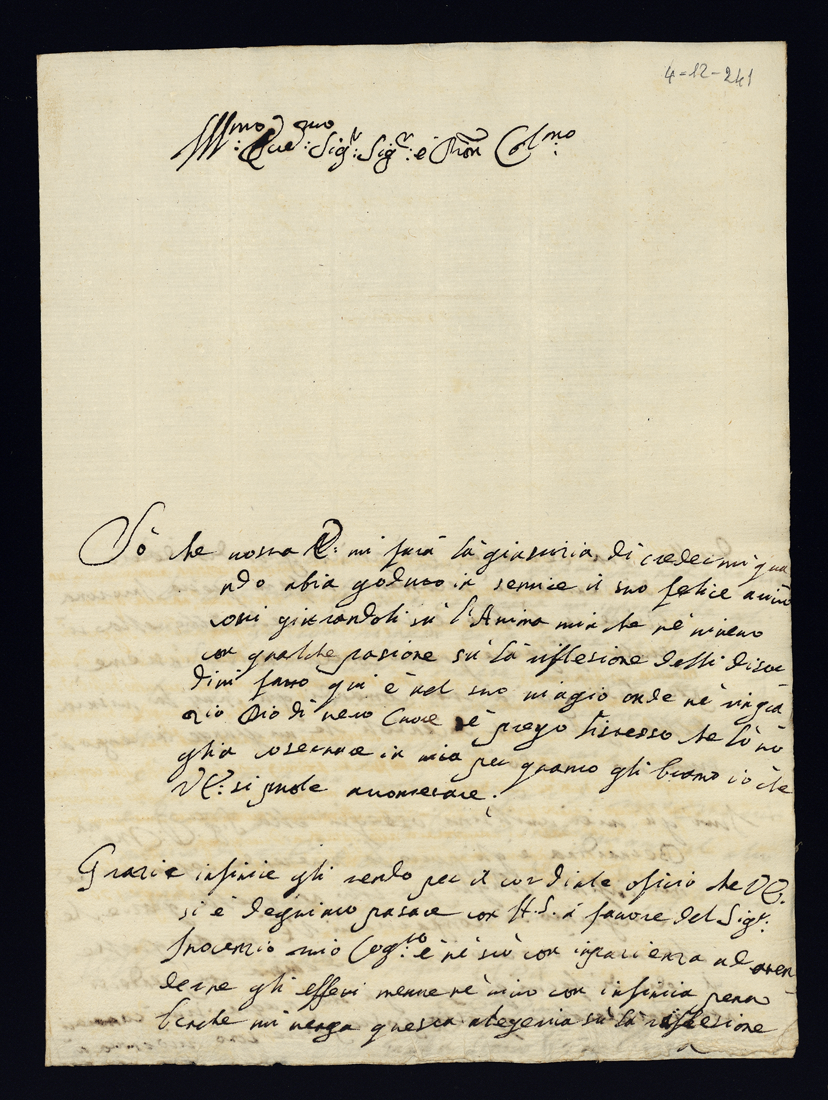 4-12-241
Ill:mo Sig:r Sig:r e Pron Col:mo
Sò che vostra E: mi farà là giustitia di credermi qua
ndo abia goduto in sentire il suo felice arivo
così giurandoli sù l'Anima mia che nè vivevo
con qualche pasione sù là riflesione delli disor
dini fatto qui è nel suo viagio onde nè ringra
tio Dio di vero Cuore è prego l'istesso che lò vo
glia conservare in mia per quanto gli bramo io che
V E: si puole acontentare.
Grazie infinite gli rendo per il cordiale oficio che V E.
si è degniato pasare con H.S. à favore del Sig:r
Inocenzio mio Cog:to è nè stò con inpacienza ad aten
derne gli effetti mentre nè vivo con infinita pena
benche mi venga questa alegerita sù là riflesione